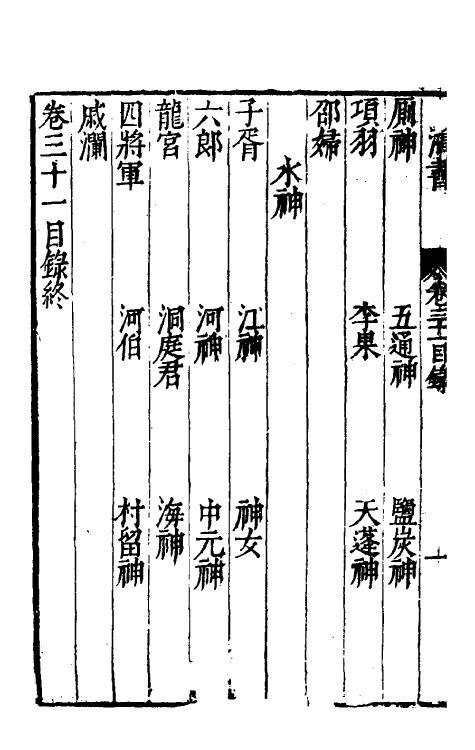 卷三十一目錄
廁神　五通神　鹽炭神
項羽　李果　天蓬神
邵婦
水神
子胥　江神　神女
六郎　河神　中元神
龍宮　洞庭君　海神
四將軍　河伯　村留神
戚瀾
卷三十一目錄終